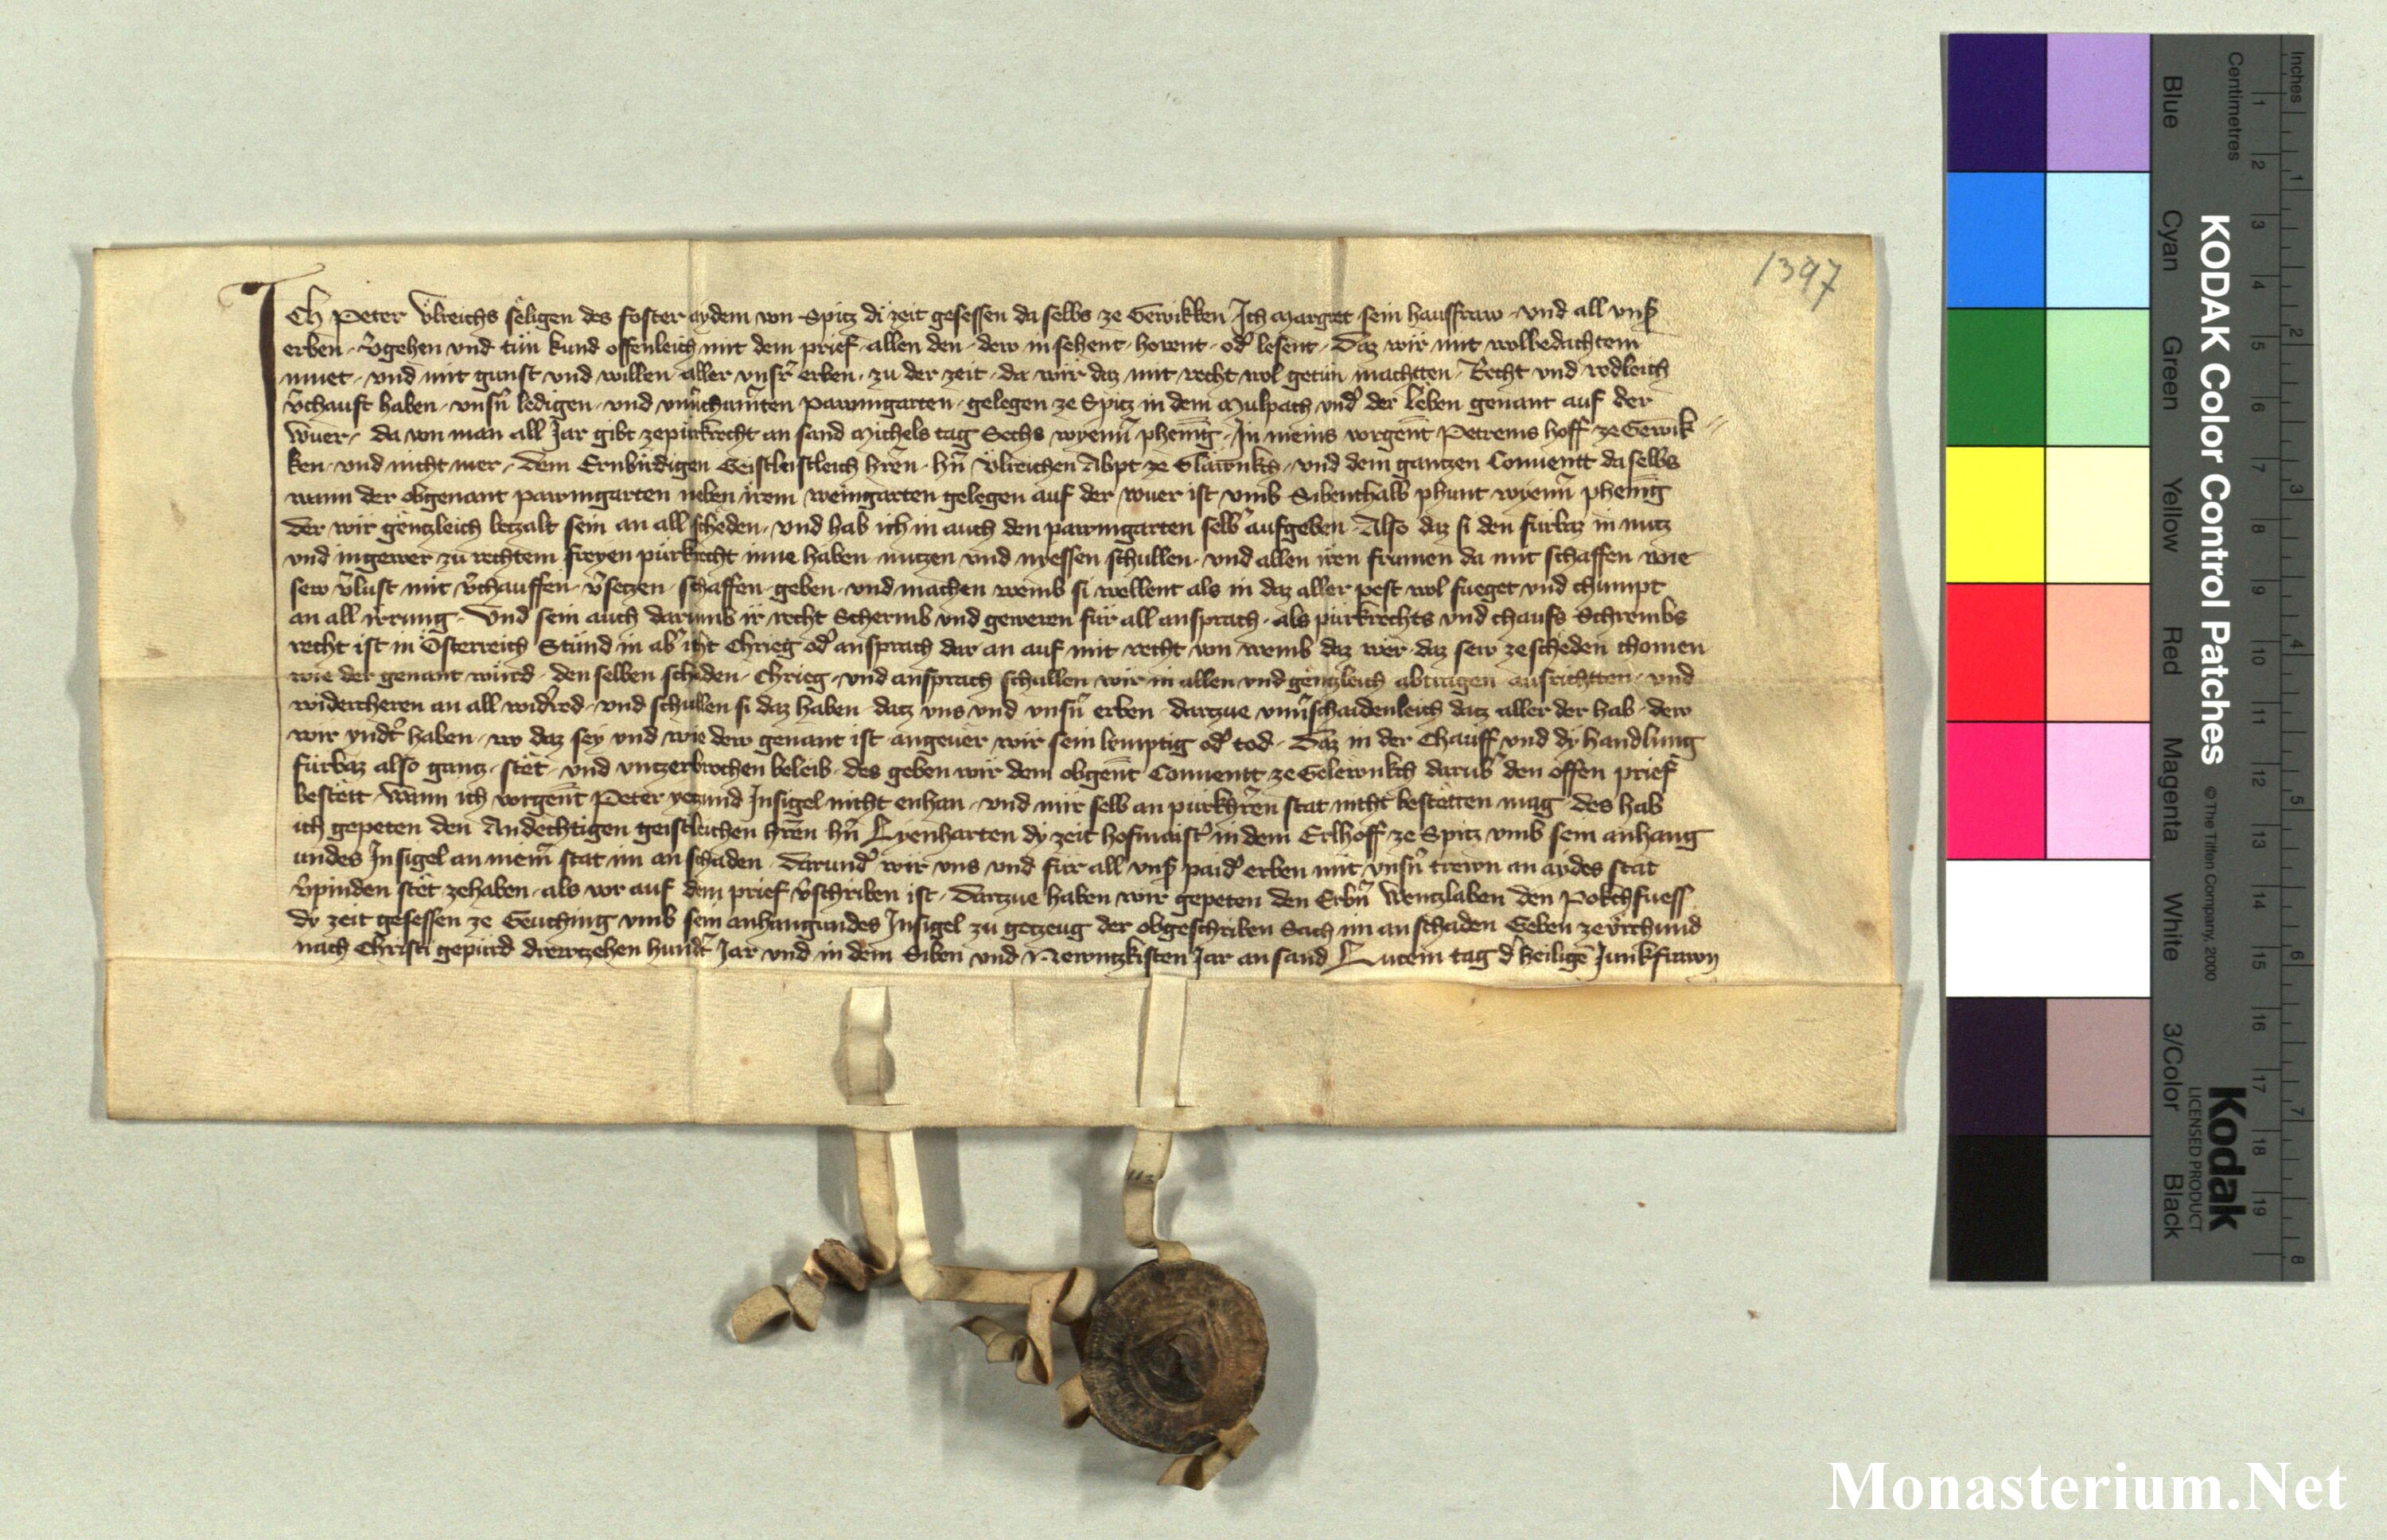 1397
Ich Peter Ulreichs seligen des foster aydem von Spitz di zeit gesessen da selbs ze Gewikken Ich Margret sein hausfraw und all unser
erben vergehen und tun kund offenleich mit dem prief allen den dew in sehent horent oder lesent Daz wir mit wolbedachtem
muet und mit gunst und willen aller unser erben zu der zeit da wir daz mit recht wol getun machtten Recht und redleich
verchauft haben unsern ledigen und unverchumerten pawmgarten gelegen ze Spitz in dem Mulpach under der leben genant auf der
wuer da von man all Jar gibt ze purkrecht an sand Michels tag Sechs wyenner phening In meins vorgent Petreins hoff ze Gewik
ken und nicht mer dem Ernbirdigen Geistleistleich hren hn Ulreichen Abpt ze und dem gantzen Conuentt da selbs
wann der obgenant pawmgarten neben irem weingarten gelegen auf der wuer ist umb Sibenthalb phunt wyenner phening
der wir gentzleich betzalt sein an all scheden und hab ich in auch den pawmgarten selber aufgeben Also daz si den furbaz in nutz
und in gewer zu rechtem freyen purkrecht inne haben nutzen und nyessen schullen und allen iren frumen da mit schaffen wie
sew verlust mit verchauffen versetzen schaffen geben und machen wemb si wellent als in daz aller pest wol fueget und chumpt
an all irrung Und sein auch darumb ir recht Schermb und geweren fur all ansprach als purkrechts und chaufs Schrembs
recht ist in Osterreich Stund in aber icht Chrieg oder ansprach dar an auf mit recht von wemb daz wer daz sew ze scheden chomen
wie der genant wurd den selben scheden Chrieg und ansprach schullen wir in allen und gentzleich abtragen ausrichtten und
widercheren an all widerred und schullen si daz haben datz uns und unsern erben dartzue unverschaidenleich datz aller der hab dew
wir yndert haben wo daz sey und wie dew genant ist angeuer wir sein lemptig oder tod Daz in der Chauff und dy handlung
furbaz also gantz stet und untzerbrochen beleib des geben wir dem obgent Conuentt ze darub den offen prief
bestett Wann ich vorgent Peter yetzund Insigel nicht enhan und mir selb an purkhren stat nicht bestetten mag des hab
ich gepeten den Andechtigen geistleichen hren hn Lyenharten dy zeit hofmaister in dem Erlhoff ze Spitz umb sein anhang
undes Insigel an meiner stat im an schaden darunder wir uns und fur all unser paider erben mit unsern trewn an aydes stat
verpinden stet ze haben als vor auf dem prief verschriben ist dartzue haben wir gepeten den Erbern Wentzlaben den Pokchfuess
dy zeit gesessen ze Geuching umb sein anhangundes Insigel zu getzeug der obgeschriben Sach im an schaden Geben ze
nach Christi gepurd drewtzehen hundert Jar und in dem Siben und Newntzkisten Jar an sand Lucein tag der heilige Junkfrawn
113
Inches
Centimetres
KODAK Color Control Patches
© The Tiffen Company, 2000
Kodak
LICENSED PRODUCT
Blue
Cyan
Green
Yellow
Red
Magenta
White
3/Color
Black
Monasterium.Net